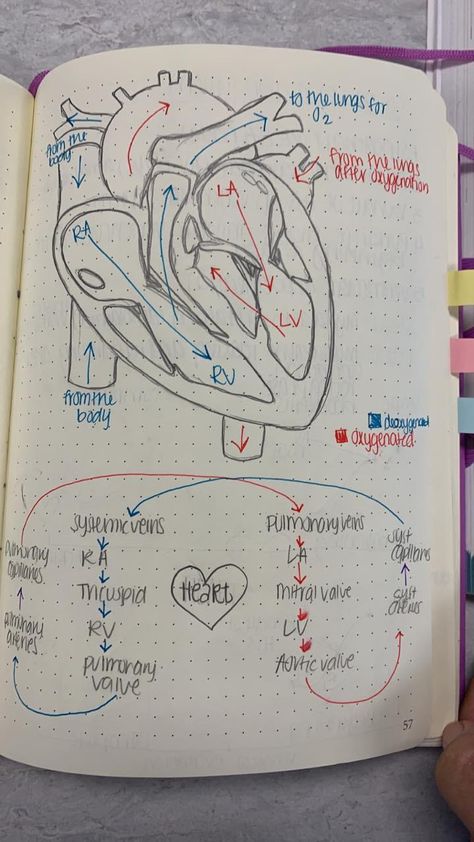 to the lungs for
O2
from the
body
from the lungs
after oxygenation
LA
RA
LV
RV
from the
body
deoxygenated
oxygenated
systemic veins
pulmonary veins
syst
capillaries
pulmonary
capillaries
RA
LA
Tricuspid
Heart
Mitral valve
syst
arteries
pulmonary
arteries
RV
LV
pulmonary
valve
Aortic valve
57